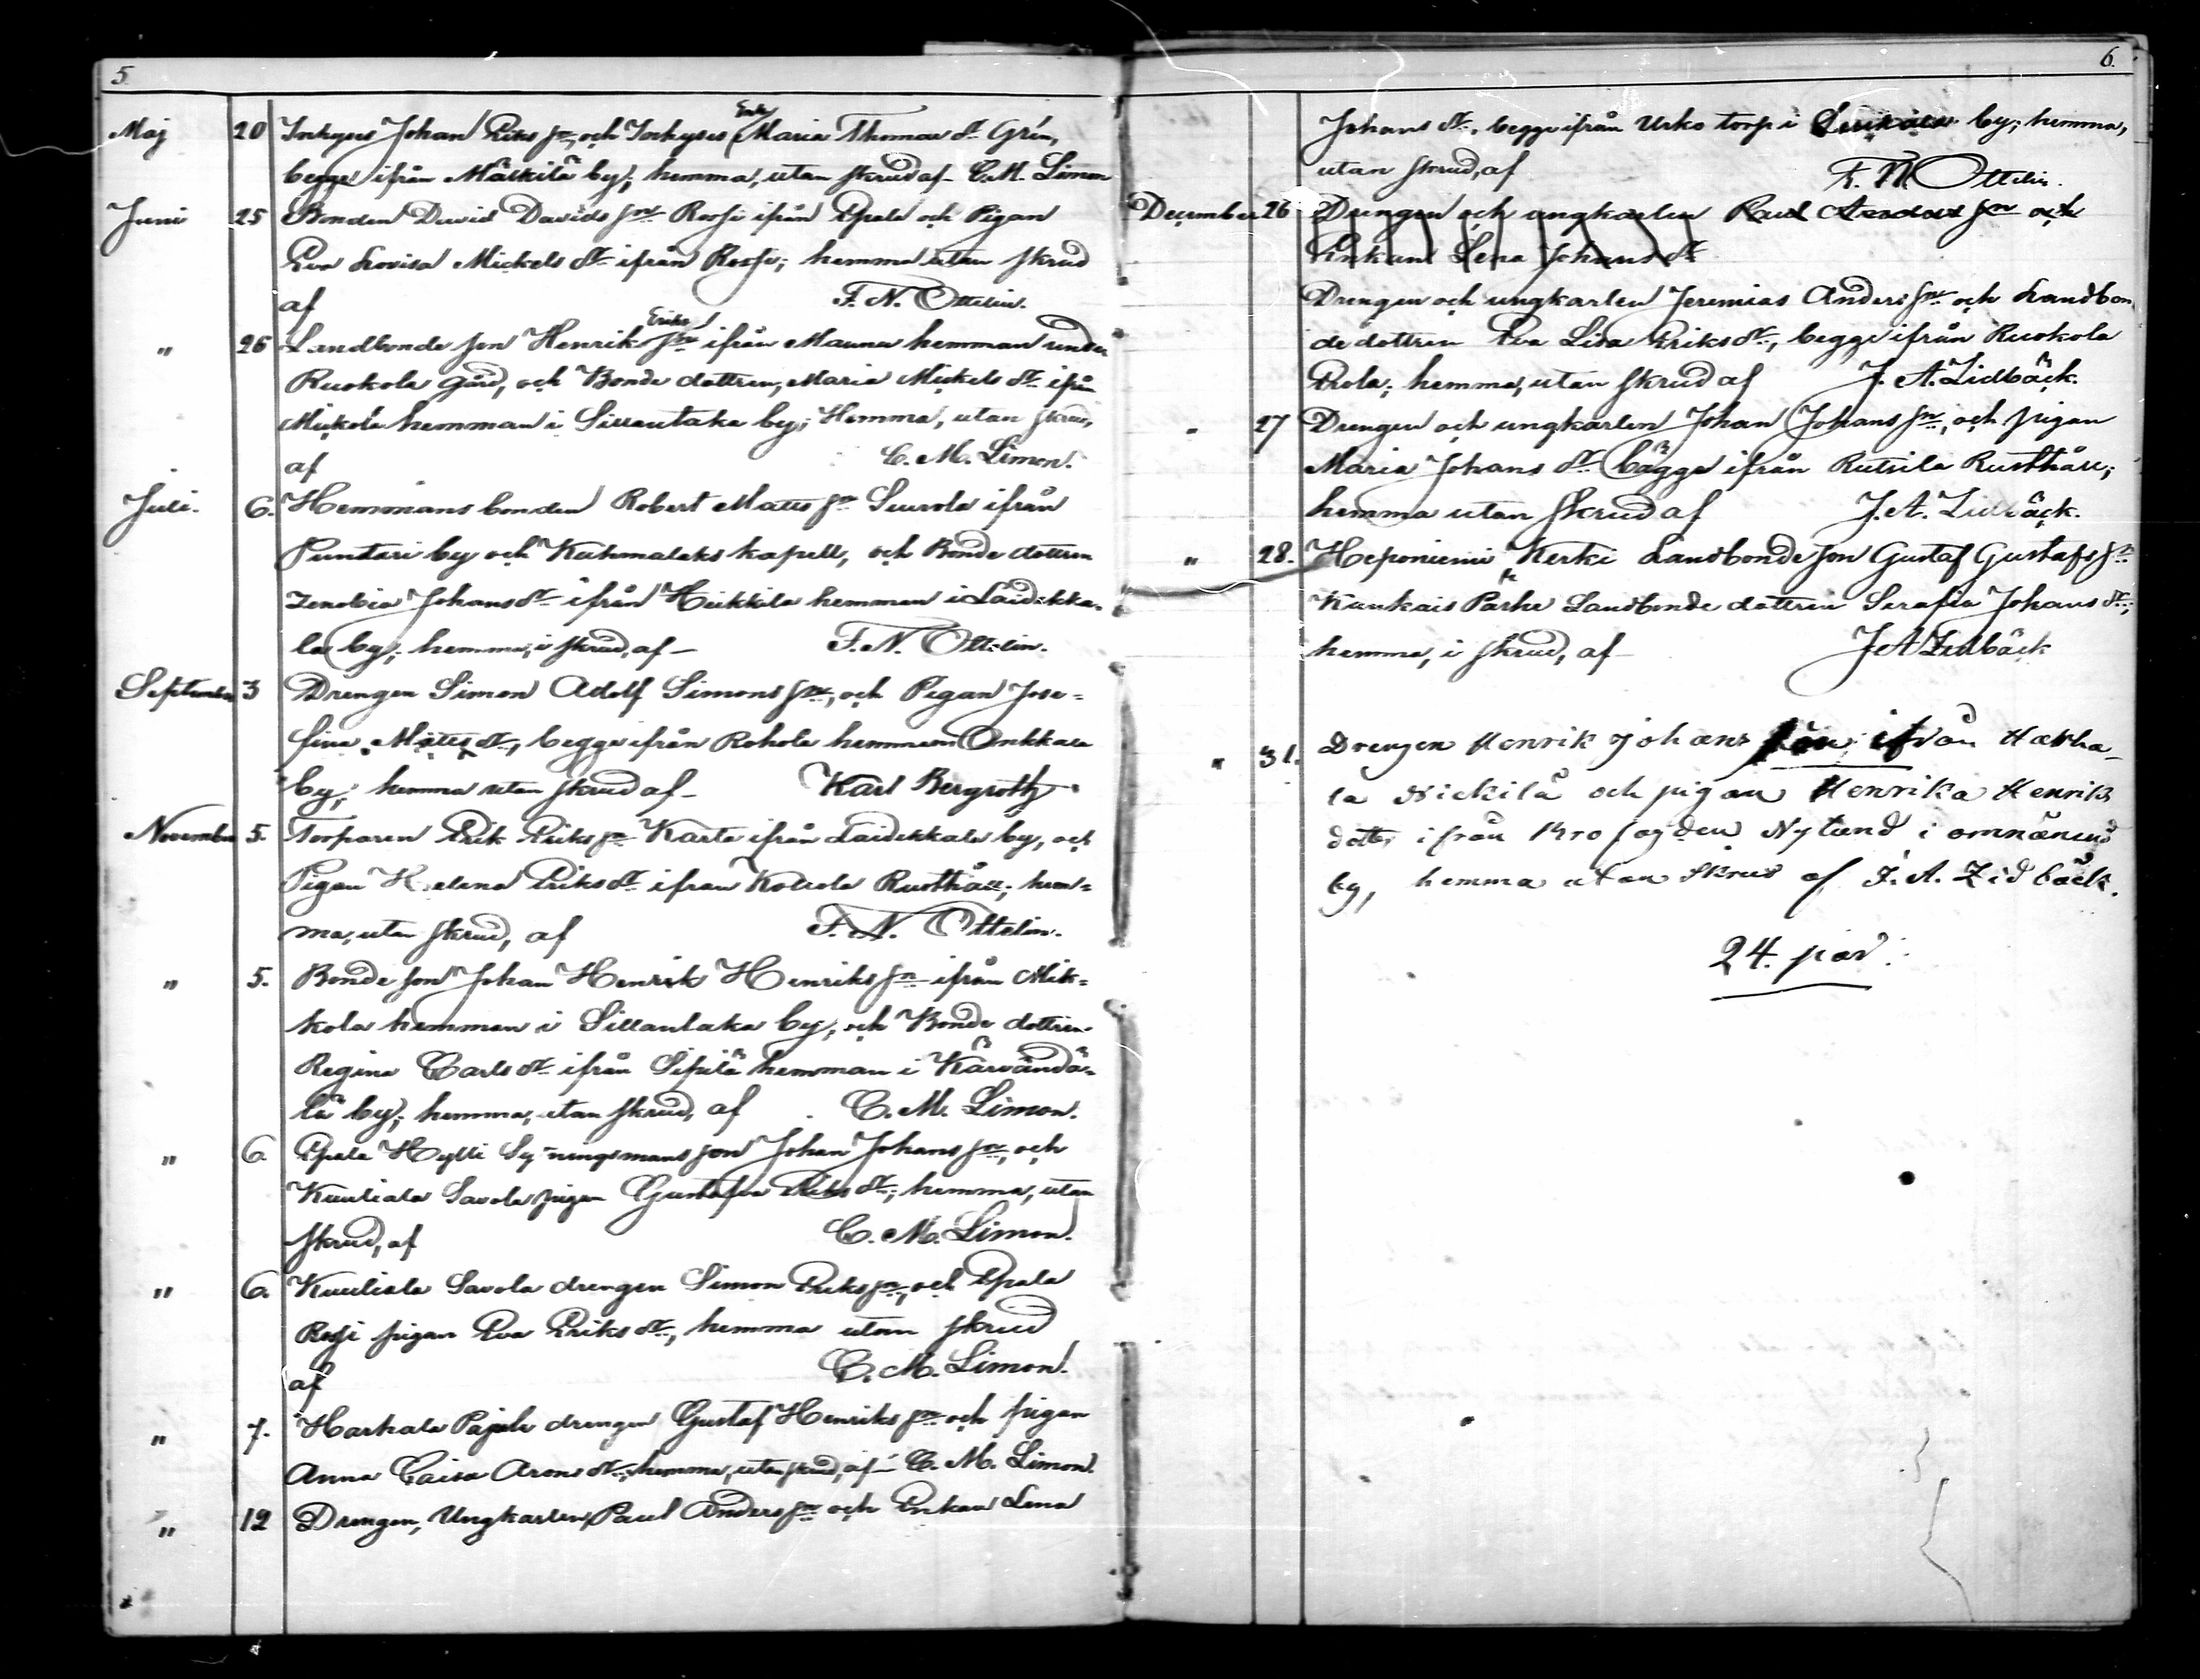 5.
Maj 20 Inhyses Johan Eriks sn, och Inhyses Enk. Maria Thomas dr Grén,
begge ifrån Mälkilä by; hemma, utan skrud af C. M. Limon
Juni 25 Bonden David Davids sn Rossi ifrån Epala och Pigan
Eva Lovisa Mickels dr ifrån Rossi; hemma utan skrud
af F. N. Ottelin.
" 26 Landbonde son Henrik Eriks sn ifrån Mauna hemman under
Ruokola gård, och Bonde dottren, Maria Mickels dr ifrån
Mickola hemman i Sillantaka by; Hemma, utan skrud,
af C. M. Limon.
Juli. 6. Hemmans bonden Robert Matts sn Suurola ifrån
Puntari by och Kuhmalaks kapell, och Bonde dottren
Zenobia Johans dr ifrån Heikkilä hemman i Laidikka-
la by; hemma, i skrud, af F. N. Ottelin.
September 3 Drengen Simon Adolf Simons sn, och Pigan Jose=
fina Matts dr, begge ifrån Rohola hemman Onkkala
by; hemma utan skrud af Karl Bergroth
November 5. Torparen Erik Eriks sn Karta ifrån Laidikkala by, och
Pigan Helena Eriks dr ifrån Rusthåll; hem=
ma, utan skrud, af F. N. Ottelin.
" 5. Bonde son Johan Henrik Henriks sn ifrån Mik=
kola hemman i Sillantaka by; och Bonde dottren
Regina Carls dr ifrån Sipilä hemman i Kärvändä=
lä by; hemma, utan skrud, af C. M. Limon.
" 6. Epala Hylli Syningsmans son Johan Johans sn, och
Kuuliala Savola pigan Gustafva Eriks dr; hemma, utan
skrud, af C. M. Limon.
" 6. Kuuliala Savola drengen Simon Eriks sn, och Epala
Rossi pigan Eva Eriks dr, hemma utan skrud
af C. M. Limon.
" 7. Harhala Pajula drengen Gustaf Henriks sn och pigan
Anna Caisa Arons dr, hemma, utan skrud, af C. M. Limon.
" 12 Drengen, Ungkarlen, Paul Anders sn och Enkan Lena
6.
Johans dr, begge ifrån Urko torp i by; hemma,
utan skrud, af F. N. Ottelin.
December 26 Drengen och ungkarlen Paul Anders sn och
Enkan Lena Johans dr
Drengen och ungkarlen Jeremias Anders sn och Landbon-
de dottren Eva Lisa Eriks dr, begge ifrån Ruokola
Prola; hemma, utan skrud af J. A. Lidbäck.
" 27 Drengen och ungkarlen Johan Johans sn, och pigan
Maria Johans dr bägge ifrån Rutsila Rusthåll;
hemma utan skrud af J. A. Lidbäck.
" 28. Heponiemi Kerki Landbonde son Gustaf Gustafs sn
Kankais Pärhe Landbonde dottren Serafia Johans dr;
hemma, i skrud, af J A Lidbäck
" 31. Drengen Henrik Johans son ifrån Harha-
la Nickilä och pigan Henrika Henriks
dotter ifrån Krofogden Nylund i omnämnd
by, hemma utan skrud af J. A. Lidbäck.
24. par.